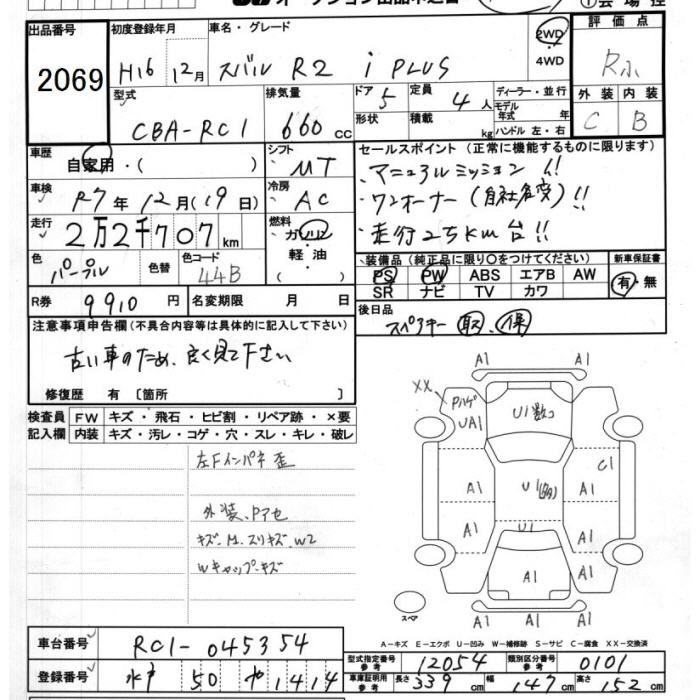 出品番号 2069
初度登録年月 H16年 12月
車名・グレード スバル R2 i PLUS
2WD・4WD
評価点 R
型式 CBA-RC1
排気量 660cc
ドア 5
定員 4人
形状
積載 kg
ディーラー・並行
モデル年式 年式
ハンドル 左・右
外装 C
内装 B
車歴 自家用・( )
シフト MT
車検 R7年12月(19日)
冷房 AC
走行 2万2千707km
燃料 ガソリン 軽油 ( )
色 パープル
色替
色コード 44B
R券 9910円
名変期限 月 日
セールスポイント (正常に機能するものに限ります)
・マニュアルミッション!!
・ワンオーナー(自社名変)!!
・走行2万km台!!
装備品 (純正品に限り〇をつけてください)
PS PW ABS エアB AW
SR ナビ TV カワ
新車保証書 有・無
後日品 スペアキー 取、保
注意事項申告欄 (不具合内容等は具体的に記入して下さい)
古い車のため、良く見て下さい
修復歴 有〔箇所 〕
検査員記入欄
FW キズ・飛石・ヒビ割・リペア跡・×要
内装 キズ・汚レ・コゲ・穴・スレ・キレ・破レ
左Fインパネ歪
外装、Pアセ
キズ、M、スリキズ、W2
Wキャップ・キズ
A1 A1
XX Pハゲ UA1 U1数コ
C1
A1 U1 A1
A1 U1 A1
A1 A1
A1 A1 A1
スペア
A-キズ E-エクボ U-凹み W-補修跡 S-サビ C-腐食 XX-交換済
車台番号 RC1-045354
登録番号 水戸 50 や1414
型式指定番号 参考 12054
類別区分番号 参考 0101
車庫証明用 参考 長さ 339cm 幅 147cm 高さ 152cm